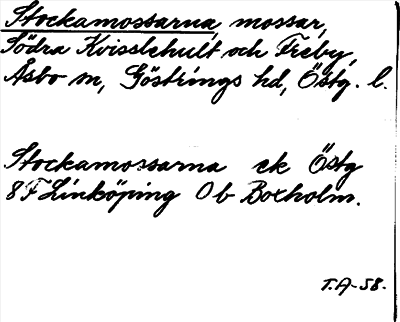 Stockamossarna, mossar,
Södra Kvisslehult och Freby,
Åsbo sn, Göstrings hd, Östg. l.
Stockamossarna ek Östg
8F Linköping 0b Boxholm.
T.A-58.